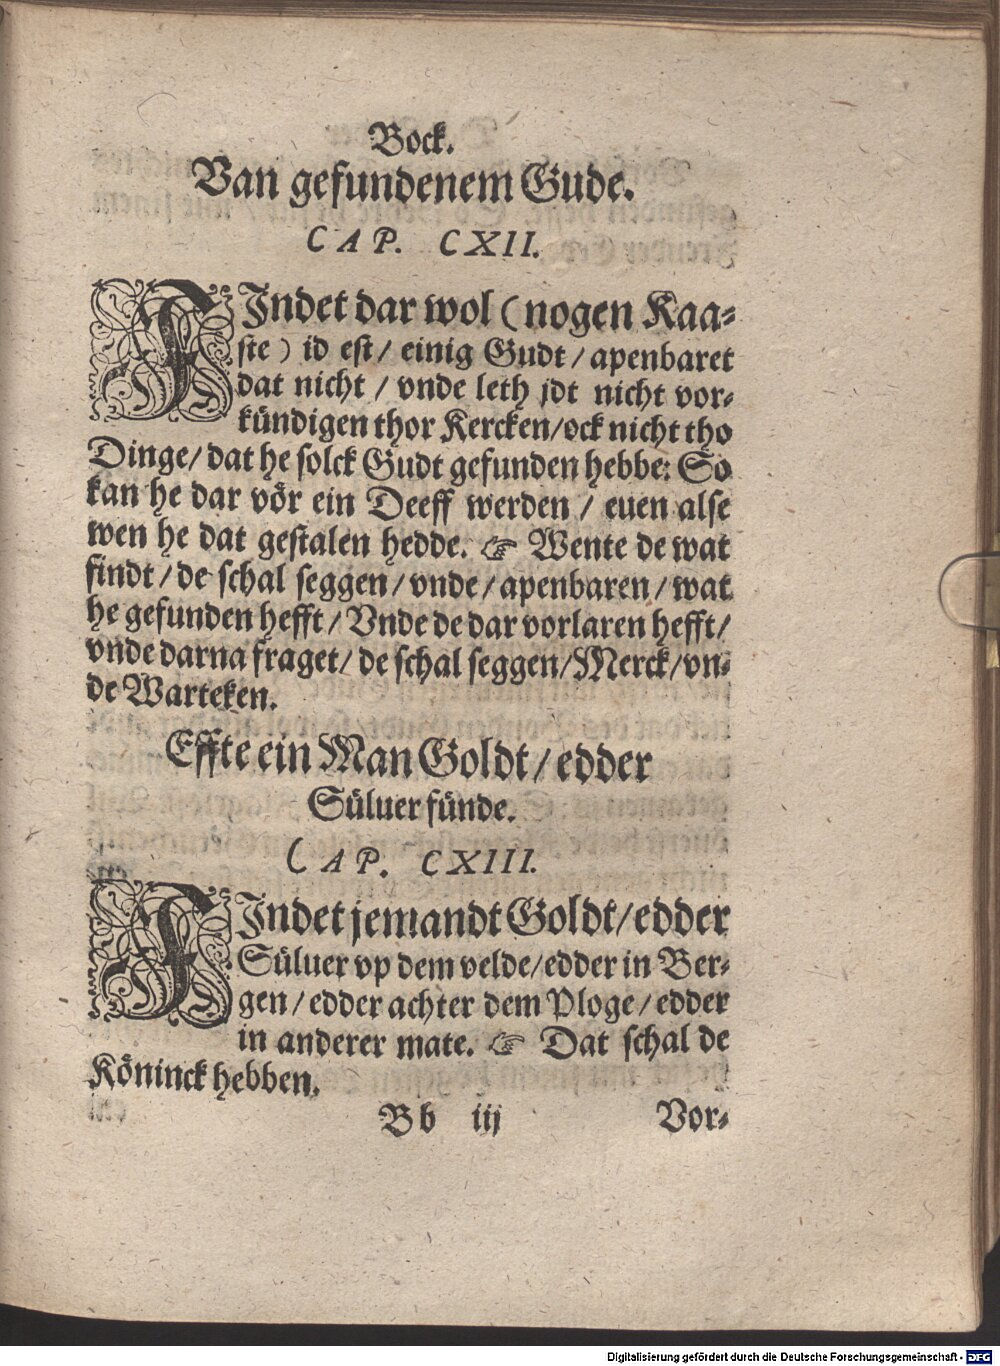 Bock.
Van gefundenem Gude.
CAP. CXII.
FIndet dar wol (nogen Kaa⸗
ste) id est/ einig Gudt/ apenbaret
dat nicht/ vnde leth jdt nicht vor⸗
kündigen thor Kercken/ock nicht tho
Dinge/ dat he solck Gudt gefunden hebbe: So
kan he dar vör ein Deeff werden/ euen alse
wen he dat gestalen hedde. ☞ Wente de wat
findt/ de schal seggen/ vnde/ apenbaren/ wat
he gefunden hefft/ Vnde de dar vorlaren hefft/
vnde darna fraget/ de schal seggen/Merck/ vn⸗
de Warteken.
Effte ein Man Goldt/ edder
Süluer fünde.
CAP. CXIII.
FIndet jemandt Goldt/ edder
Süluer vp dem velde/edder in Ber⸗
gen/ edder achter dem Ploge/ edder
in anderer mate. ☞ Dat schal de
Köninck hebben.
Bb iij Vor⸗
Digitalisierung gefördert durch die Deutsche Forschungsgemeinschaft - DFG